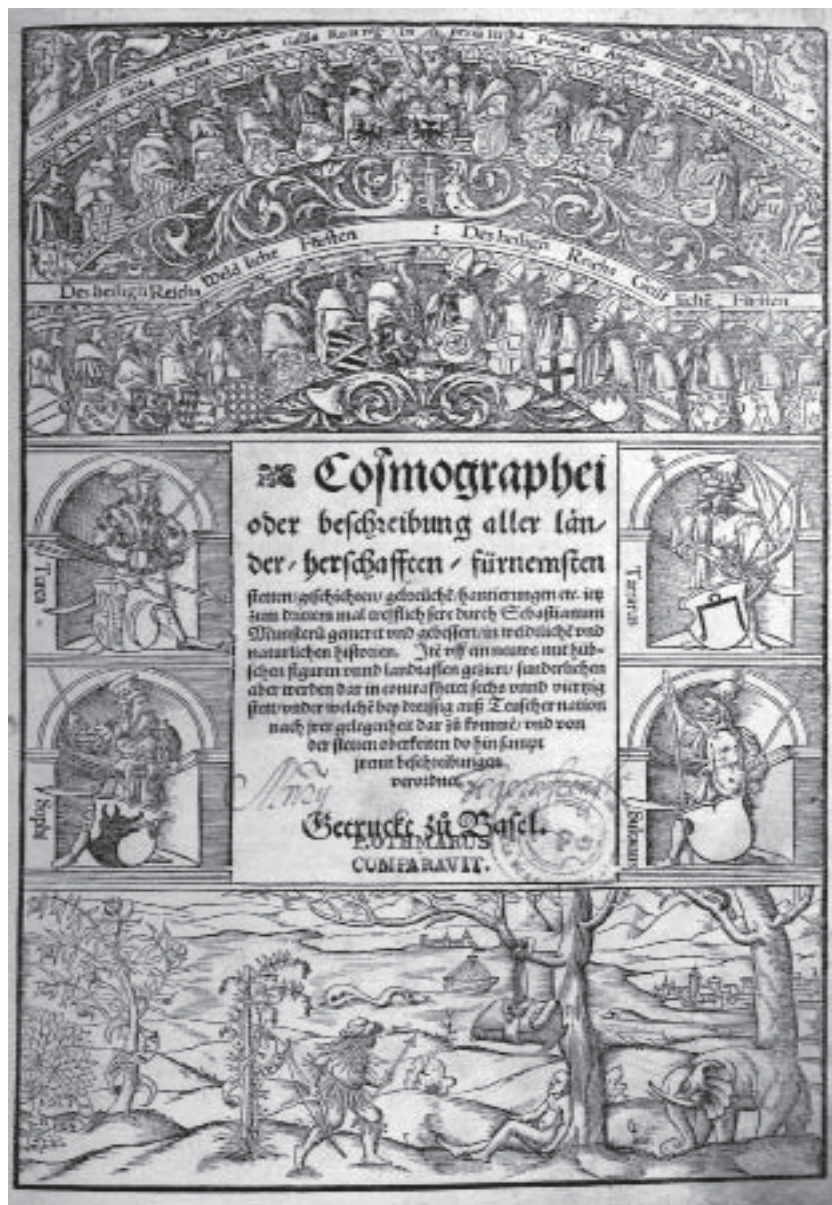 Des heiligen Reichs Weldliche Fürsten : Des heiligen Reichs Geistlichē Fürsten
Cosmographei
oder beschreibung aller län⸗
der / herschafften / fürnemsten
stetten / geschichten / gebreüchē / hantierungen etc. ietz
zum dritten mal trefflich sere durch Sebastianum
Munsterū gemeret vnd gebessert / in weldlichē vnd
naturlichen historien. Itē vff ein neuws mit hüb⸗
schen figuren vnnd landtaflen geziert / sunderlichen
aber werden dar in contrafhetet sechs vnnd viertzig
stett / vnder welchē bey dreissig auß Teutscher nation
nach jrer gelegenheit dar zů kommē / vnd von
der stetten oberkeiten do hin sampt
jrenn beschreibungen
verordnet.
Getruckt zů Basel.
P. OTHMARUS
COMPARAVIT.
Turca
Tartarus
Sophi